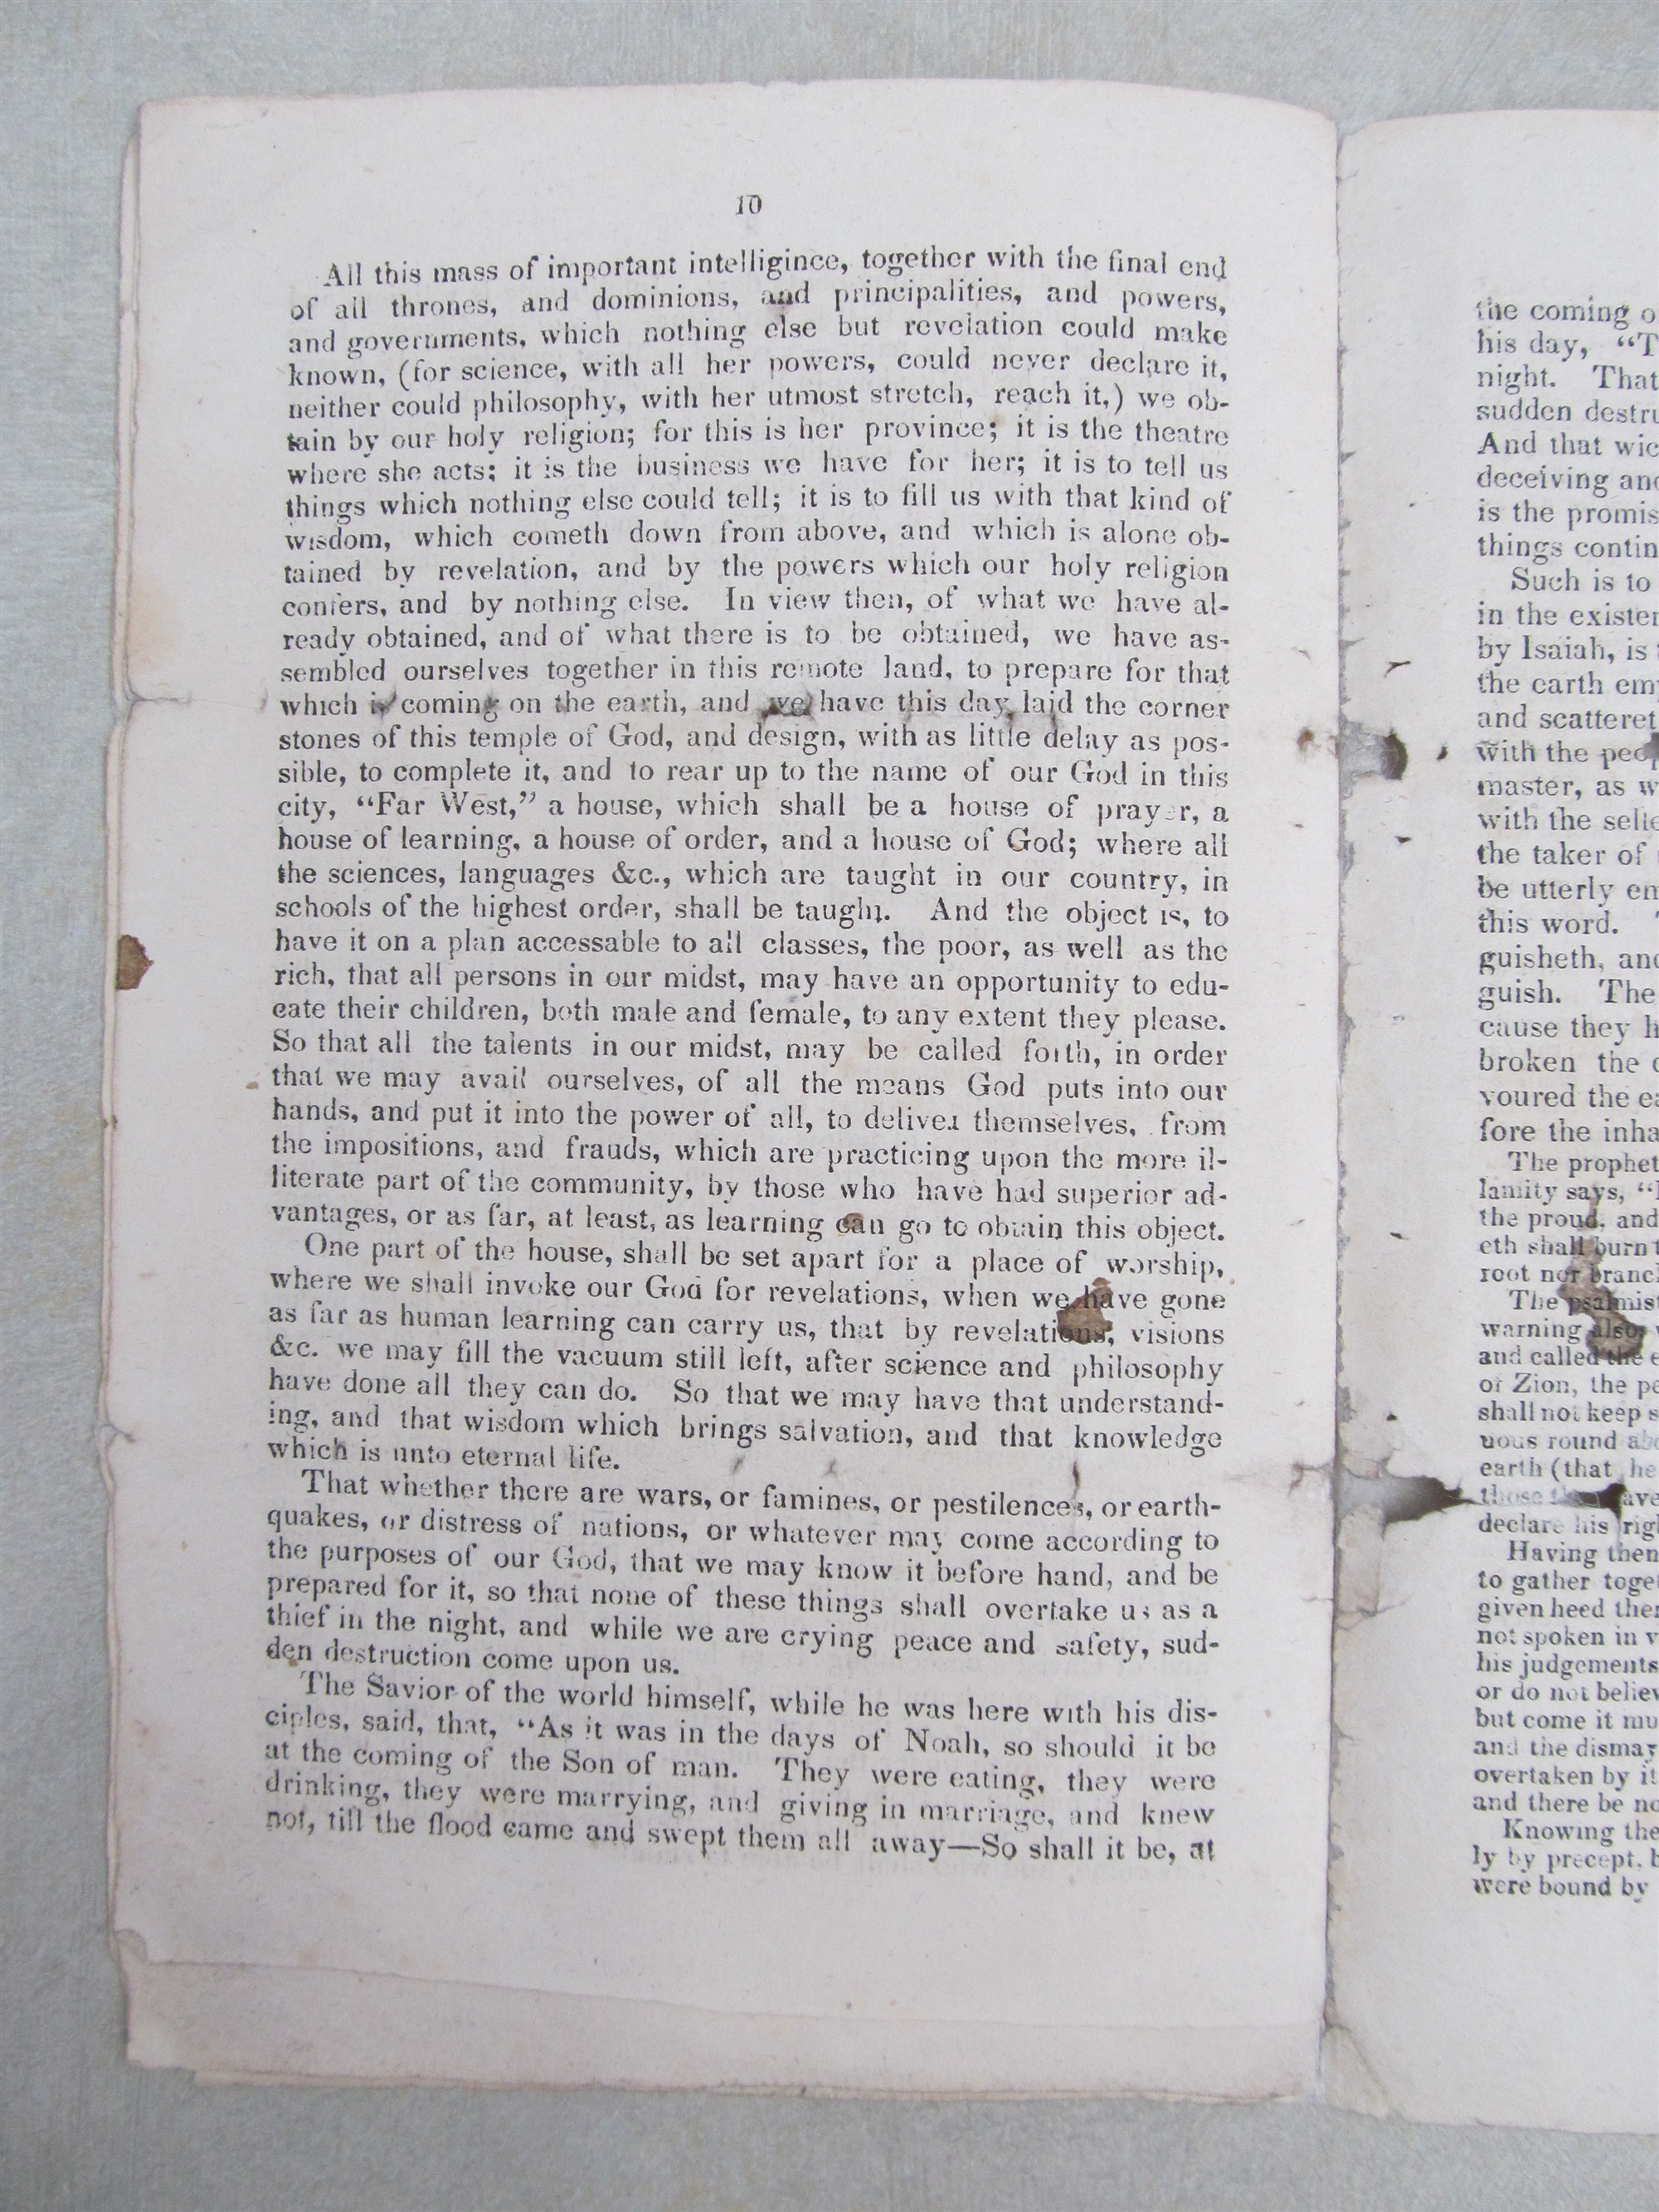 10
All this mass of important intelligince, together with the final end
of all thrones, and dominions, and principalities, and powers,
and governments, which nothing else but revelation could make
known, (for science, with all her powers, could never declare it,
neither could philosophy, with her utmost stretch, reach it,) we ob-
tain by our holy religion; for this is her province; it is the theatre
where she acts; it is the business we have for her; it is to tell us
things which nothing else could tell; it is to fill us with that kind of
wisdom, which cometh down from above, and which is alone ob-
tained by revelation, and by the powers which our holy religion
confers, and by nothing else. In view then, of what we have al-
ready obtained, and of what there is to be obtained, we have as-
sembled ourselves together in this remote land, to prepare for that
which is coming on the earth, and we have this day laid the corner
stones of this temple of God, and design, with as little delay as pos-
sible, to complete it, and to rear up to the name of our God in this
city, “Far West,” a house, which shall be a house of prayer, a
house of learning, a house of order, and a house of God; where all
the sciences, languages &c., which are taught in our country, in
schools of the highest order, shall be taught. And the object is, to
have it on a plan accessable to all classes, the poor, as well as the
rich, that all persons in our midst, may have an opportunity to edu-
cate their children, both male and female, to any extent they please.
So that all the talents in our midst, may be called forth, in order
that we may avail ourselves, of all the means God puts into our
hands, and put it into the power of all, to deliver themselves, from
the impositions, and frauds, which are practicing upon the more il-
literate part of the community, by those who have had superior ad-
vantages, or as far, at least, as learning can go to obtain this object.
One part of the house, shall be set apart for a place of worship,
where we shall invoke our God for revelations, when we have gone
as far as human learning can carry us, that by revelations, visions
&c. we may fill the vacuum still left, after science and philosophy
have done all they can do. So that we may have that understand-
ing, and that wisdom which brings salvation, and that knowledge
which is unto eternal life.
That whether there are wars, or famines, or pestilences, or earth-
quakes, or distress of nations, or whatever may come according to
the purposes of our God, that we may know it before hand, and be
prepared for it, so that none of these things shall overtake us as a
thief in the night, and while we are crying peace and safety, sud-
den destruction come upon us.
The Savior of the world himself, while he was here with his dis-
ciples, said, that, “As it was in the days of Noah, so should it be
at the coming of the Son of man. They were eating, they were
drinking, they were marrying, and giving in marriage, and knew
not, till the flood came and swept them all away—So shall it be, at
the coming o
his day, “T
night. That
sudden destru
And that wic
deceiving and
is the promis
things contin
Such is to
in the existen
by Isaiah, is
the earth em
and scatteret
with the peop
master, as w
with the selle
the taker of
be utterly em
this word.
guisheth, and
guish. The
cause they h
broken the
voured the ea
fore the inha
The prophet
lamity says,
the proud, and
eth shall burn
root nor branch
The psalmist
warning also,
and called the e
of Zion, the pe
shall not keep s
uous round
earth (that he
those
declare his rig
Having then
to gather toget
given heed ther
not spoken in v
his judgements
or do not believ
but come it mu
and the dismay
overtaken by it
and there be no
Knowing the
ly by precept, b
were bound by